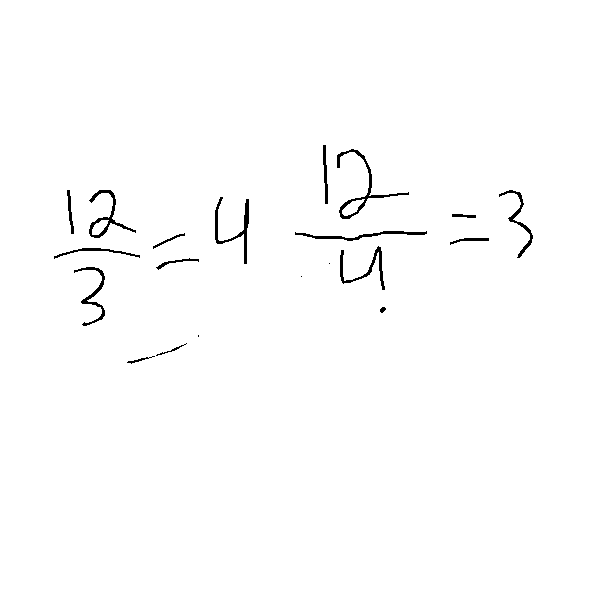 12/3 = 4 12/4 = 3